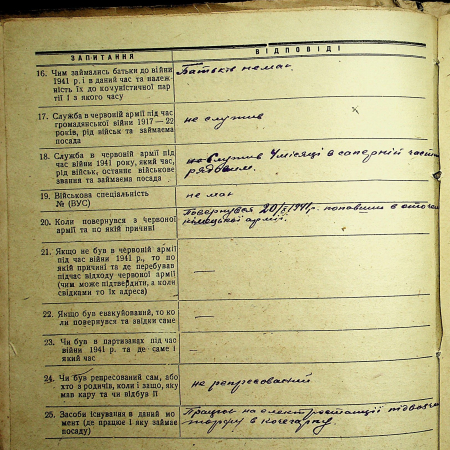 ЗАПИТАННЯ
ВІДПОВІДІ
16. Чим займались батьки до війни
1941 р. і в даний час та належ-
ність їх до комуністичної пар-
тії і з якого часу
Батьків немає
17. Служба в червоній армії під час
громадянської війни 1917—22
років, рід військ та займаєма
посада
не служив
18. Служба в червоній армії під
час війни 1941 року, який час,
рід військ, останнє військове
звання та займаєма посада
служив 4 місяці в саперній
рядовим.
19. Військова спеціальність
№ (ВУС)
не має
20. Коли повернувся з червоної
армії та по якій причині
Повернувся 20/X 1941 р. попавши в
німецької армії.
21. Якщо не був в червоній армії
під час війни 1941 р., то по
якій причині та де перебував
під час відходу червоної армії
(чим може підтвердити, а коли
свідками то їх адреса)
—
22. Якщо був евакуйований, то ко
ли повернувся та звідки саме
—
23. Чи був в партизанах під час
війни 1941 р. та де саме і
який час
—
24. Чи був репресований сам, або
хто з родичів, коли і защо, яку
мав кару та чи відбув її
не репресований
25. Засоби існування в даний мо
мент (де працює і яку займає
посаду)
Працює на електростанції
торфу в кочегарку.